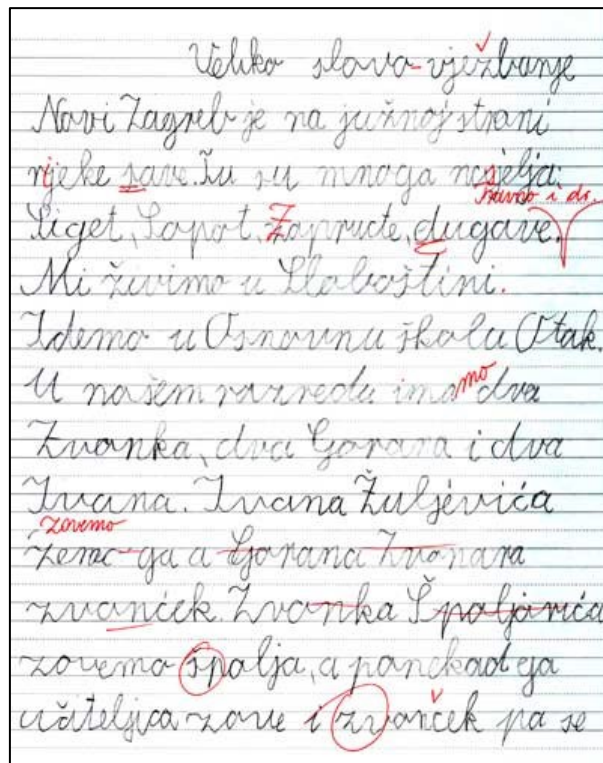 Veliko slovo-vježbanje
Novi Zagreb je na južnoj strani
rijeke save. Tu su mnoga naselja:
ravno i dr.
Siget, Sopot, Zapruđe, dugave.
Mi živimo u Sloboštini.
Idemo u Osnovnu školu Otok.
U našem razredu imamo dva
Zvonka, dva Gorana i dva
Ivana. Ivana Žuljevića
zovemo
ga a Gorana Zvonara
zvonček. Zvonka Špoljarića
zovemo špolja, a ponekad ga
učiteljica zove i zvonček pa se